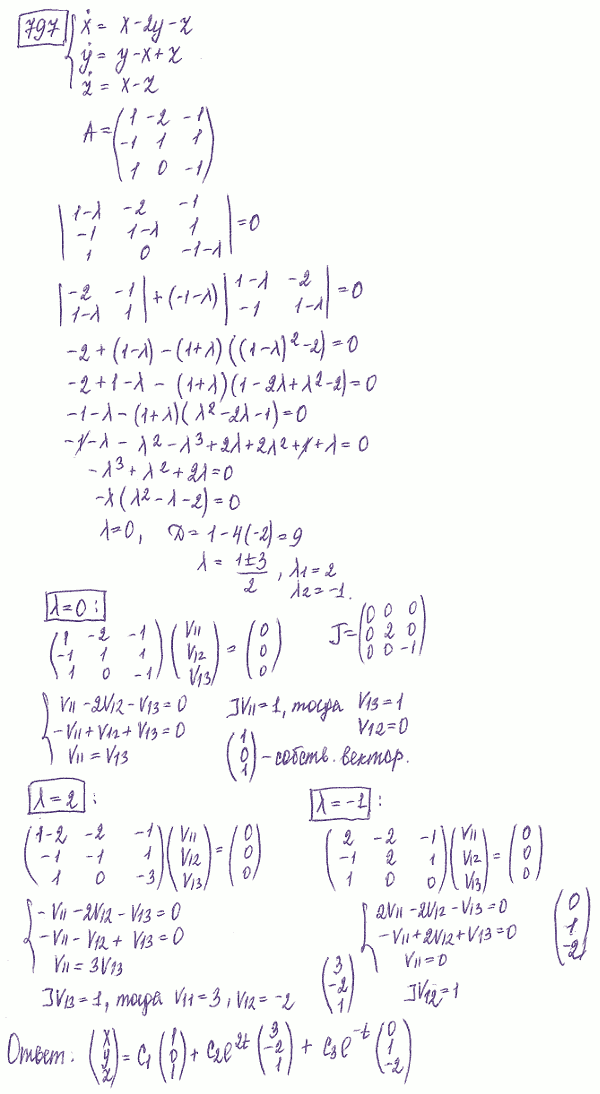 797 { ẋ = x - 2y - z
ẏ = y - x + z
ż = x - z
A = ( 1 -2 -1
-1 1 1
1 0 -1 )
| 1-λ -2 -1
-1 1-λ 1
1 0 -1-λ | = 0
| -2 -1 | + (-1-λ) | 1-λ -2 | = 0
| 1-λ 1 | | -1 1-λ |
-2 + (1-λ) - (1+λ)((1-λ)² - 2) = 0
-2 + 1 - λ - (1+λ)(1 - 2λ + λ² - 2) = 0
-1 - λ - (1+λ)(λ² - 2λ - 1) = 0
-1 - λ - λ² - λ³ + 2λ + 2λ² + 1 + λ = 0
-λ³ + λ² + 2λ = 0
-λ(λ² - λ - 2) = 0
λ = 0, D = 1 - 4(-2) = 9
λ = (1±3)/2, λ1 = 2
λ2 = -1.
λ = 0 :
( 1 -2 -1
-1 1 1
1 0 -1 ) ( V11
V12
V13 ) = ( 0
0
0 )
J = ( 0 0 0
0 2 0
0 0 -1 )
{ V11 - 2V12 - V13 = 0
-V11 + V12 + V13 = 0
V11 = V13
]V11 = 1, тогда V13 = 1
V12 = 0
( 1
0
1 ) - собств. вектор.
λ = 2 :
( 1-2 -2 -1
-1 -1 1
1 0 -3 ) ( V11
V12
V13 ) = ( 0
0
0 )
{ -V11 - 2V12 - V13 = 0
-V11 - V12 + V13 = 0
V11 = 3V13
]V13 = 1, тогда V11 = 3, V12 = -2
( 3
-2
1 )
λ = -1 :
( 2 -2 -1
-1 2 1
1 0 0 ) ( V11
V12
V13 ) = ( 0
0
0 )
{ 2V11 - 2V12 - V13 = 0
-V11 + 2V12 + V13 = 0
V11 = 0
]V12 = 1
( 0
1
-2 )
Ответ: ( x
y
z ) = C1 ( 1
0
1 ) + C2e^2t ( 3
-2
1 ) + C3e^-t ( 0
1
-2 )